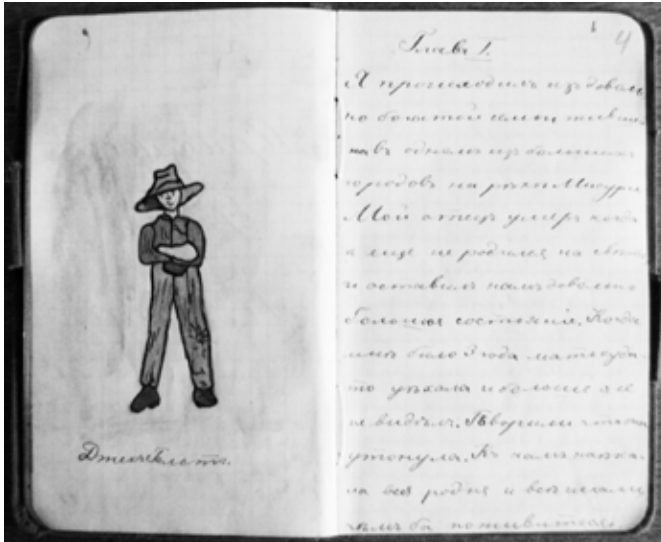 4
Глава I.
Я происходилъ изъ доволь
но богатой семьи живша
въ одномъ изъ большихъ
городовъ на рѣки Мисури
Мой отецъ умеръ когда
я еще не родился на свѣтъ
и оставилъ намъ довольно
большое состоянiе. Когда
мнѣ было 3 года мать куда-
то уѣхала и больше я ее
не видѣлъ. Говорили что она
утонула. Къ намъ наѣха
ла вся родня и всѣ искали
чѣмъ бы поживиться.